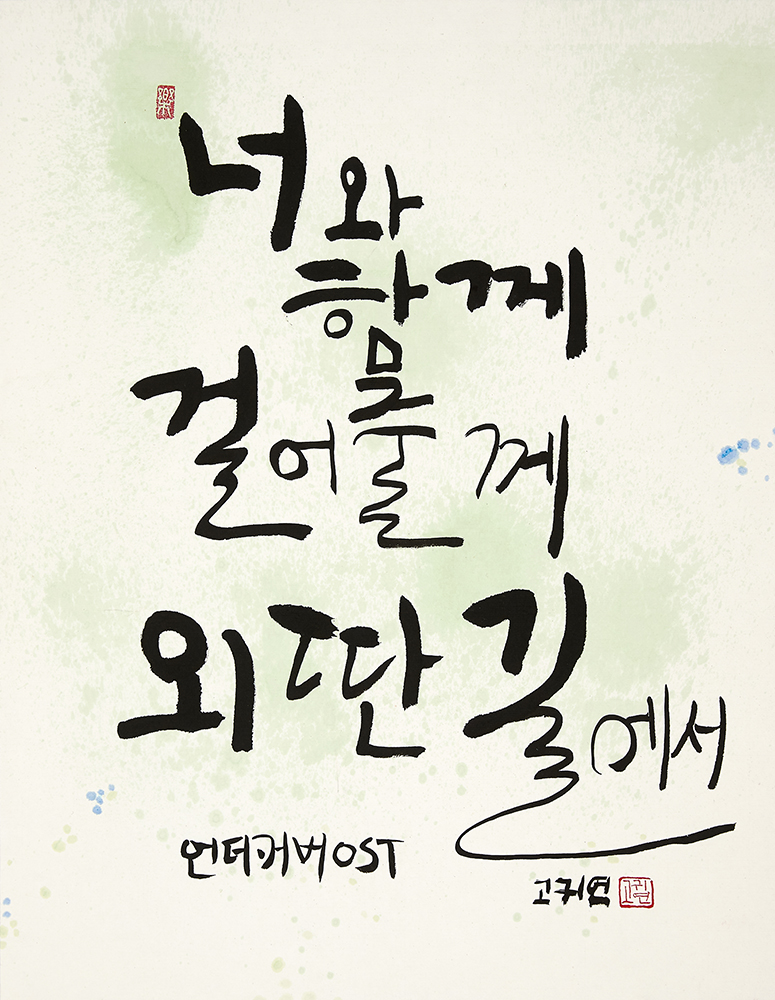 樂
너와
함께
걸어줄께
외딴길에서
언더커버OST
고귀연